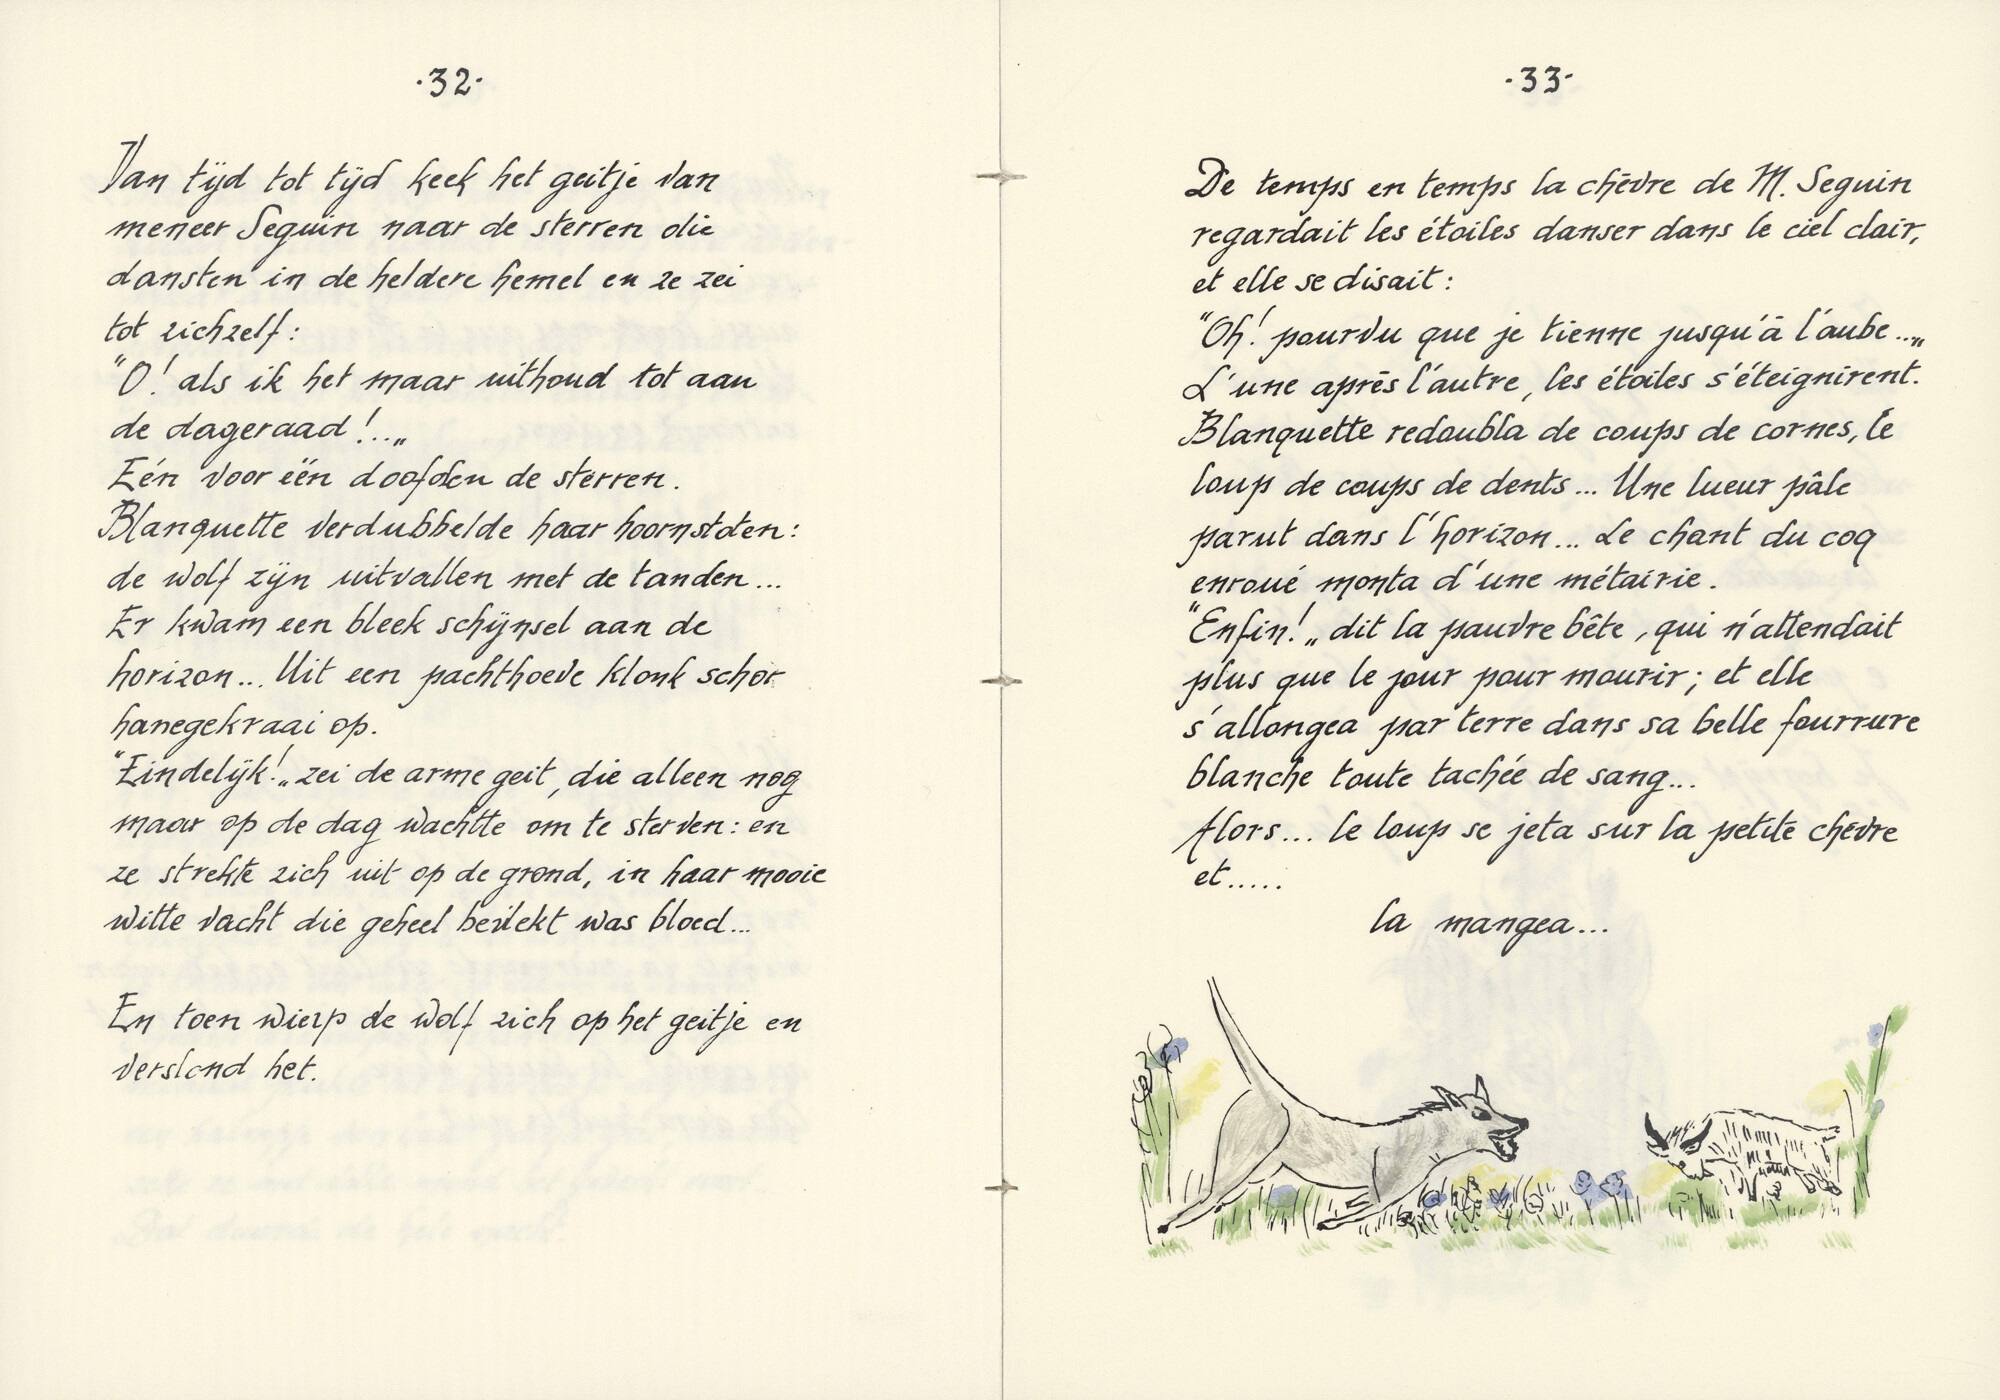 ·32·
Van tijd tot tijd keek het geitje van
meneer Seguin naar de sterren die
dansten in de heldere hemel en ze zei
tot zichzelf:
"O! als ik het maar uithoud tot aan
de dageraad!..„
Eén voor één doofden de sterren.
Blanquette verdubbelde haar hoornstoten:
de wolf zijn uitvallen met de tanden...
Er kwam een bleek schijnsel aan de
horizon... Uit een pachthoeve klonk schor
hanegekraai op.
"Eindelijk!„ zei de arme geit, die alleen nog
maar op de dag wachtte om te sterven: en
ze strekte zich uit op de grond, in haar mooie
witte vacht die geheel bevlekt was bloed...
En toen wierp de wolf zich op het geitje en
verslond het.
·33·
De temps en temps la chèvre de M. Seguin
regardait les étoiles danser dans le ciel clair,
et elle se disait:
"Oh! pourvu que je tienne jusqu'à l'aube...„
L'une après l'autre, les étoiles s'éteignirent.
Blanquette redoubla de coups de cornes, le
loup de coups de dents... Une lueur pâle
parut dans l'horizon... Le chant du coq
enroué monta d'une métairie.
"Enfin!„ dit la pauvre bête, qui n'attendait
plus que le jour pour mourir; et elle
s'allongea par terre dans sa belle fourrure
blanche toute tachée de sang...
Alors... le loup se jeta sur la petite chèvre
et.....
la mangea...